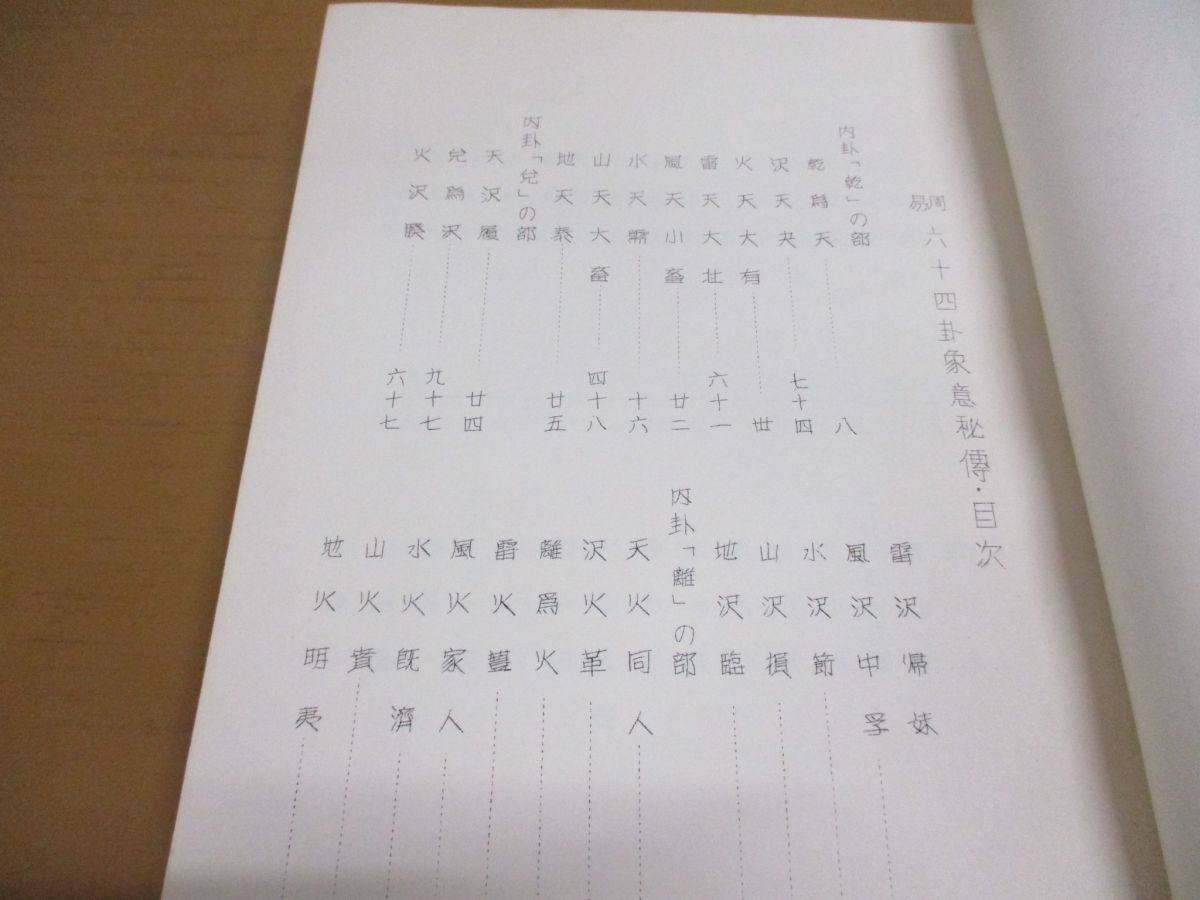 周易六十四卦象意秘傳・目次
内卦「乾」の部
乾爲天……八
沢天夬……七十四
火天大有……丗
雷天大壮……六十一
風天小畜……廿二
水天需……十六
山天大畜……四十八
地天泰……廿五
内卦「兌」の部
天沢履……廿四
兌爲沢……九十七
火沢睽……六十七
雷沢帰妹
風沢中孚……
水沢節……
山沢損……
地沢臨……
内卦「離」の部
天火同人……
沢火革……
離爲火……
雷火豐……
風火家人……
水火既濟……
山火賁……
地火明夷……